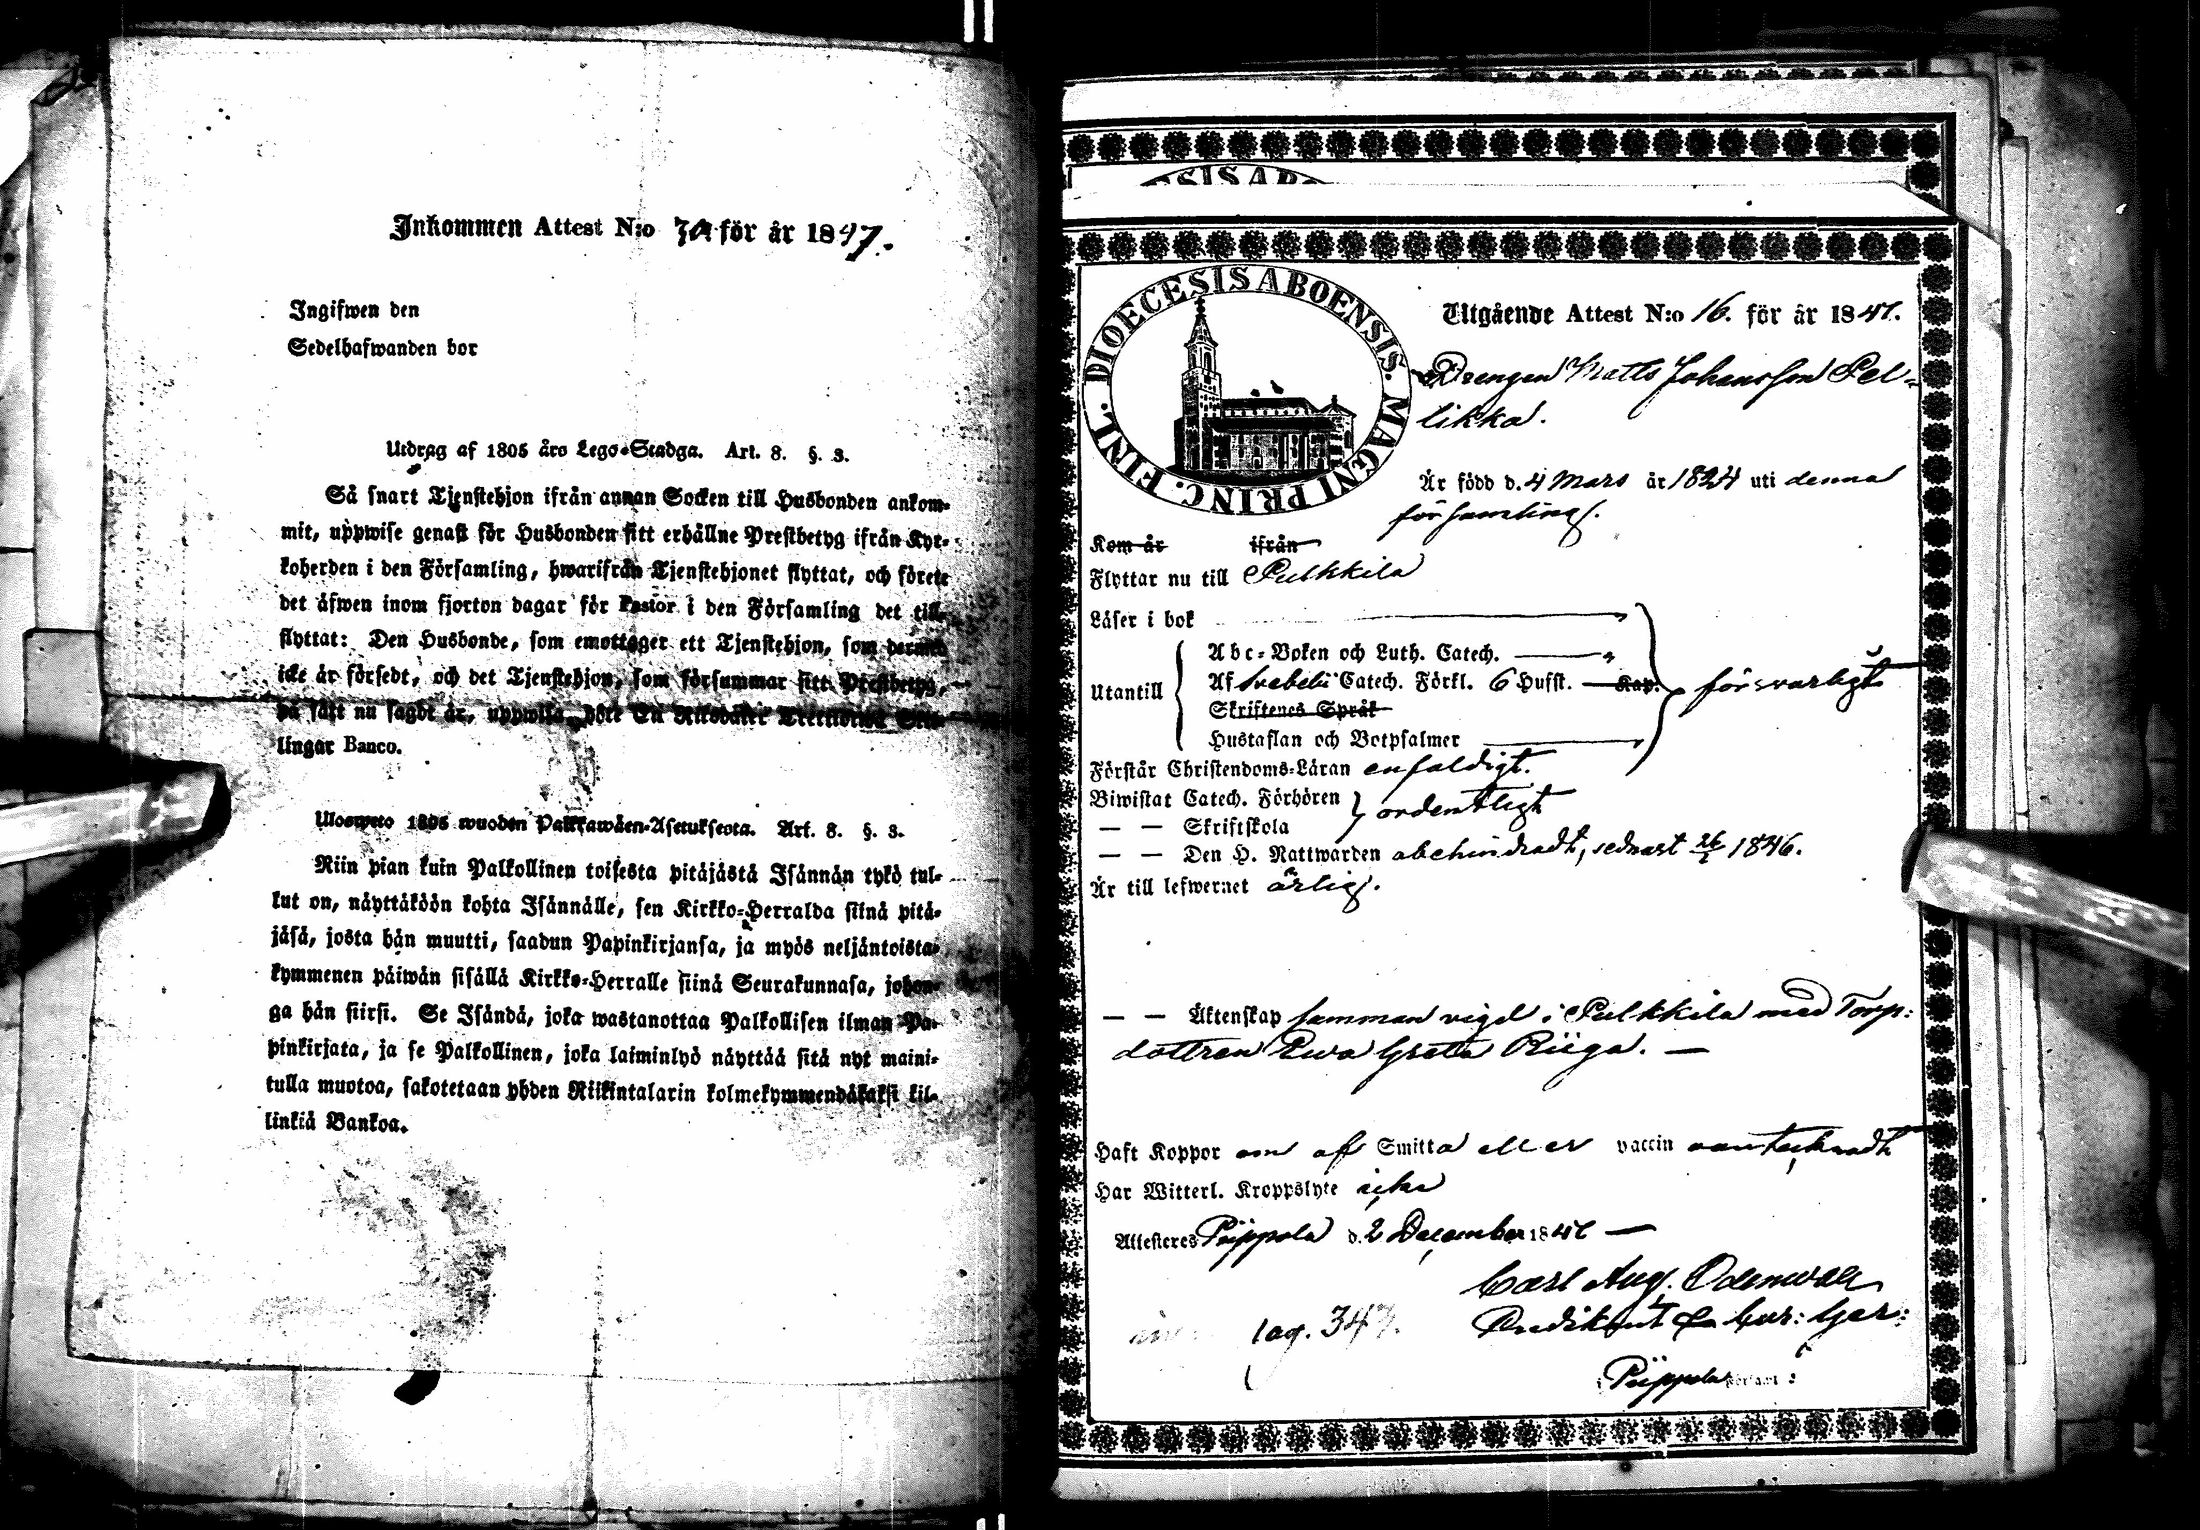 Inkommen Attest N:o för år 1847.
Ingifwen den
Sedelhafwanden bor
Utdrag af 1805 års Lego-Stadga. Art. 8. §. 3.
Så snart Tjenstehjon ifrån annan Socken till Husbonden ankom-
mit, uppwise genast för Husbonden sitt erhållne Prestbetyg ifrån Kyr-
koherden i den Församling, hwarifrån Tjenstehjonet flyttat, och förete
det äfwen inom fjorton dagar för Pastor i den Församling det till-
flyttat: Den Husbonde, som emottager ett Tjenstehjon, som dermed
icke är försedt, och det Tjenstehjon, som försummar sitt Prestbetyg,
på sätt nu sagdt är, uppwisa, böte En Riksdaler Trettiotwå Skil-
lingar Banco.
Ulosweto 1805 wuoden Palkkawäen-Asetuksesta. Art. 8. §. 3.
Niin pian kuin Palkollinen toisesta pitäjästä Isännän tykö tul-
lut on, näyttäköön kohta Isännälle, sen Kirkko-Herralda siinä pitä-
jäsä, josta hän muutti, saadun Papinkirjansa, ja myös neljäntoista-
kymmenen päiwän sisällä Kirkko-Herralle siinä Seurakunnasa, johon-
ga hän siirsi. Se Isändä, joka wastanottaa Palkollisen ilman Pa-
pinkirjata, ja se Palkollinen, joka laiminlyö näyttää sitä nyt maini-
tulla muotoa, sakotetaan yhden Riikintalarin kolmekymmendäkaksi kil-
linkiä Bankoa.
DIOECESIS ABO
DIOECESIS ABOENSIS. MAGNI PRINC. FINL.
Utgående Attest N:o 16. för år 1847.
Drengen Matts Johansson Pel-
likka.
Är född d. 4 Mars år 1824 uti denna
församling.
Kom år ifrån
Flyttar nu till Pulkkila
Läser i bok
Abc-Boken och Luth. Catech. "
Utantill Af Svebelii Catech. Förkl. 6 Hufst. Kap. försvarligt
Skriftenes Språk
Hustaflan och Botpsalmer
Förstår Christendoms-Läran enfaldigt.
Biwistat Catech. Förhören ordentligt
— — Skriftskola
— — Den H. Nattwarden obehindradt, sednast 1846.
Är till lefwernet ärlig.
— — Äktenskap samman vigd i Pulkkila med Torp:
dottren Ewa Greta Riiga. —
Haft Koppor om af Smitta eller vaccin oantecknadt
Har Witterl. Kroppslyte icke
Attesteres Piippola d. 2 December 1847 —
Carl Aug. Odenwall
Predikant
pag. 347.
Piippola